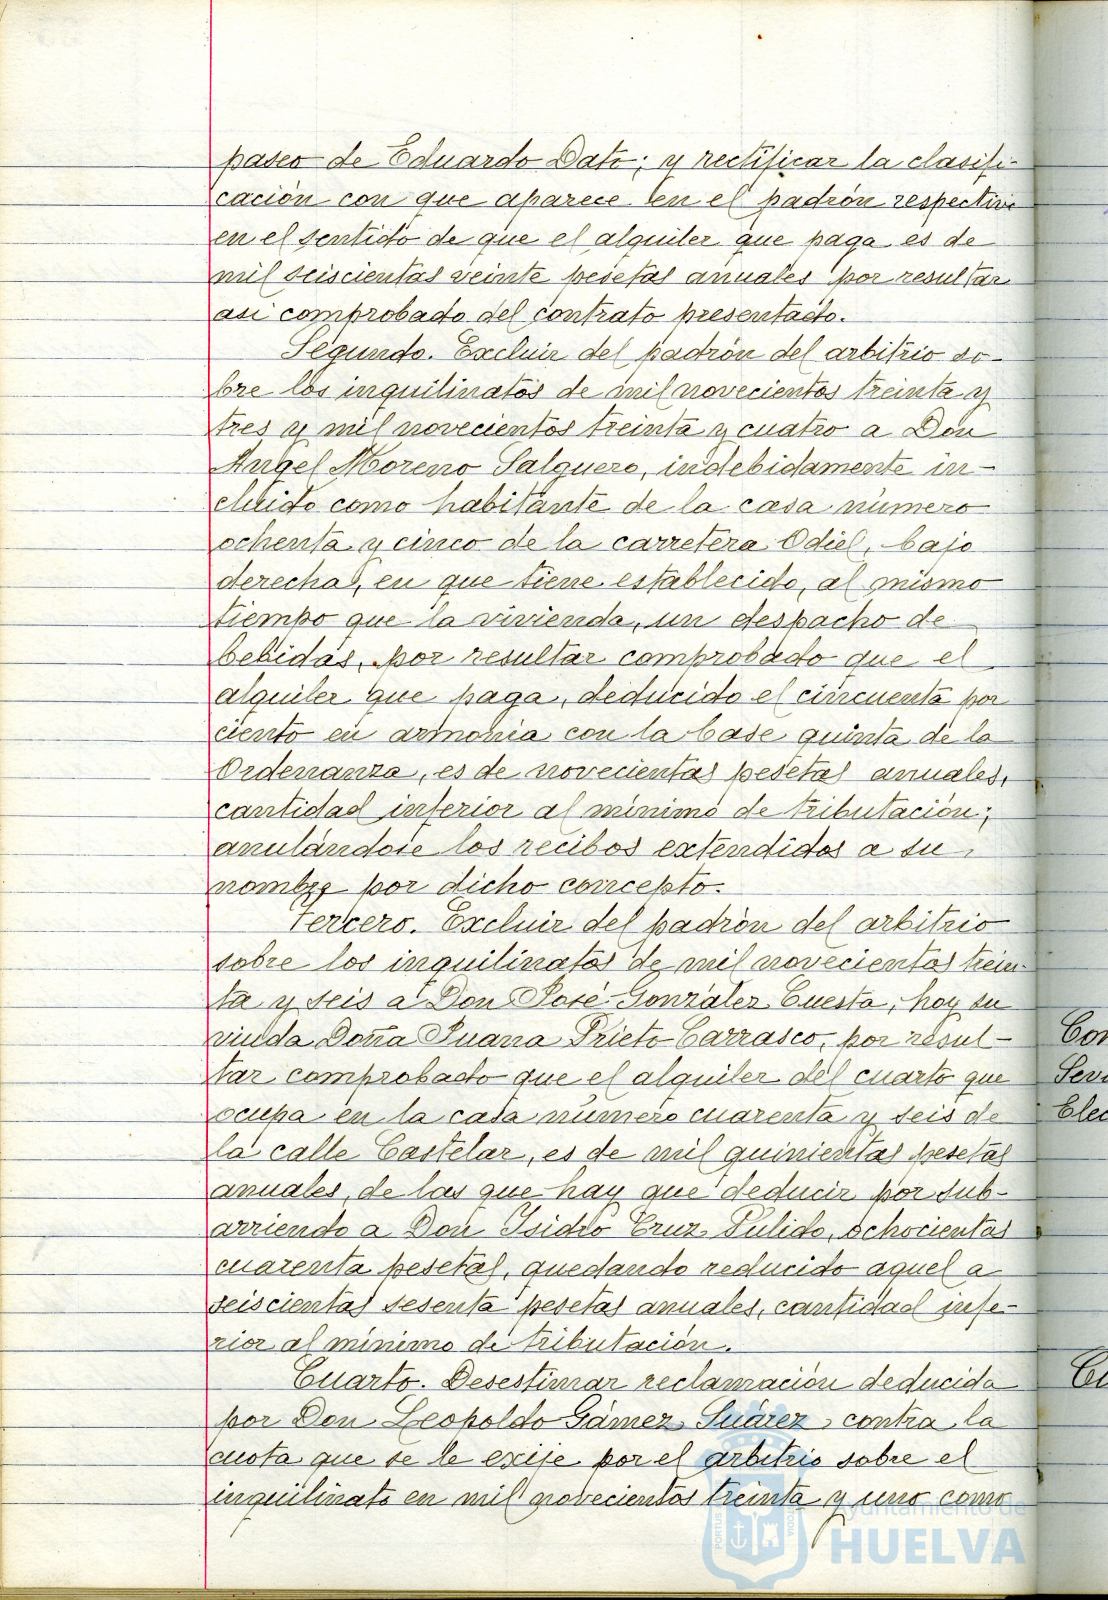 paseo de Eduardo Dato; y rectificar la clasifi-
cación con que aparece en el padrón respectivo
en el sentido de que el alquiler que paga es de
mil seiscientas veinte pesetas anuales por resultar
asi comprobado del contrato presentado.
Segundo. Excluir del padrón del arbitrio so-
bre los inquilinatos de mil novecientos treinta y
tres y mil novecientos treinta y cuatro a Don
Angel Moreno Salguero, indebidamente in-
cluido como habitante de la casa número
ochenta y cinco de la carretera Odiel, bajo
derecha, en que tiene establecido, al mismo
tiempo que la vivienda, un despacho de
bebidas, por resultar comprobado que el
alquiler que paga, deducido el cincuenta por
ciento en armonia con la base quinta de la
Ordenanza, es de novecientas pesetas anuales,
cantidad inferior al mínimo de tributación;
anulándose los recibos extendidos a su
nombre por dicho concepto.
Tercero. Excluir del padrón del arbitrio
sobre los inquilinatos de mil novecientos trein-
ta y seis a Don José González Cuesta, hoy su
viuda Doña Juana Prieto Carrasco, por resul-
tar comprobado que el alquiler del cuarto que
ocupa en la casa número cuarenta y seis de
la calle Castelar, es de mil quinientas pesetas
anuales, de las que hay que deducir por sub-
arriendo a Don Isidro Cruz Pulido, ochocientas
cuarenta pesetas, quedando reducido aquel a
seiscientas sesenta pesetas anuales, cantidad infe-
rior al mínimo de tributación.
Cuarto. Desestimar reclamación deducida
por Don Leopoldo Gámez Suárez, contra la
cuota que se le exije por el arbitrio sobre el
inquilinato en mil novecientos treinta y uno como
Con
Sevi
Elec
Cu
Ayuntamiento de
HUELVA